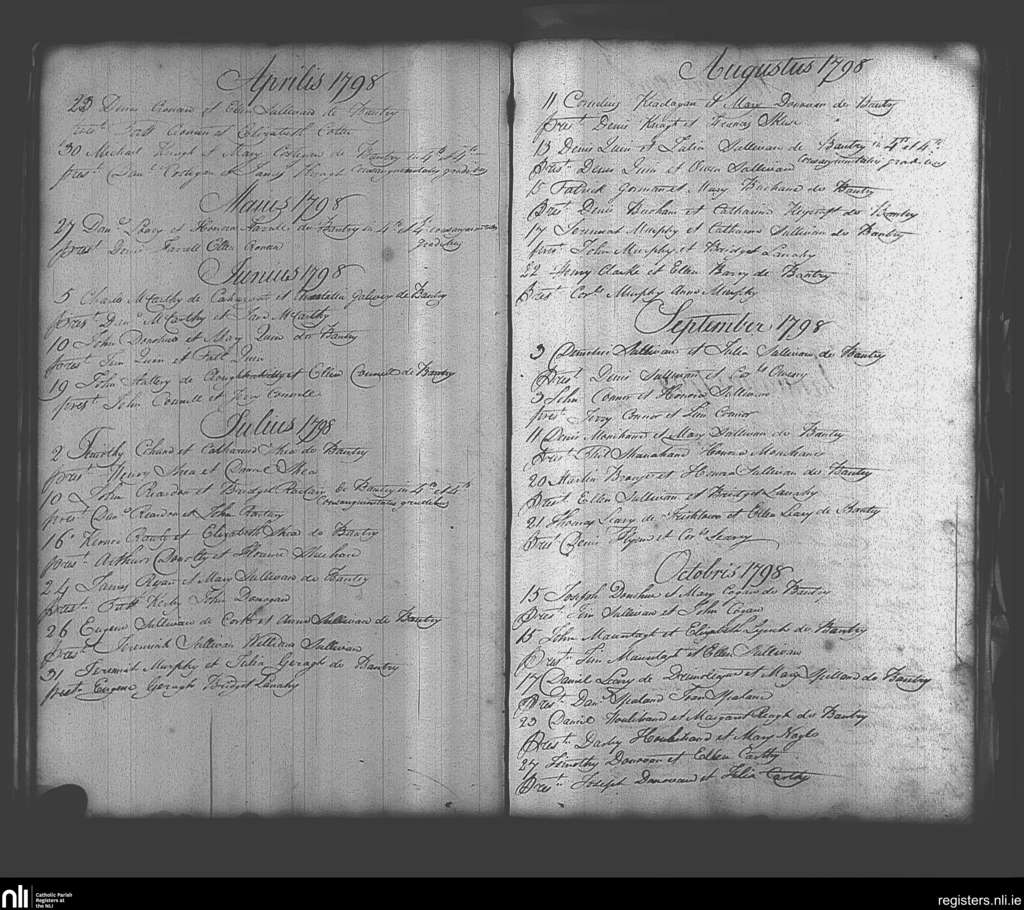 Aprilis 1798
23 Denis Cronan et Ellen Sullivan de Bantry
prest. Patt Cronan et Elizabeth Cotter
30 Michael Keogh et Mary Costigan de Bantry in 4to et 4to
prest. Danl Costigan et Keogh Consanguinitatis gradibus
Maius 1798
27 Danl Leary et Honora Farrell de Bantry in 4to et 4to consanguinitatis
prest. Denis Farrell Ellen Cronan gradibus
Junius 1798
5 Charles McCarthy de et Galwey de Bantry
prest. Danl McCarthy et Jane McCarthy
10 John Donohue et Mary Quin de Bantry
prest. Tim Quin et Patt Quin
19 John Hallery de et Ellen Connelle de Bantry
prest. John Connelle et Jerry Connelle
Julius 1798
2 Timothy et Catharine Shea de Bantry
prest. Henry Shea et Shea
10 John Reardon et Bridget de Bantry in 4to et 4to
prest. Danl Reardon et John Consanguinitatis gradibus
16 et Elizabeth Shea de Bantry
prest. Arthur Donolty et Florence Sheehane
24 James Ryan et Mary Sullivan de Bantry
prest. Patt Kirby John Donogan
26 Eugene Sullivan de Cork et Anne Sullivan de Bantry
Prest. Jeremiah Sullivan William Sullivan
31 Jeremiah Murphy et Julia Geragh de Bantry
prest. Eugene Geragh Bridget Lanahy
Augustus 1798
11 Cornelius Keadagan et Mary Donovan de Bantry
prest. Denis Keogh et Frances
13 Denis Quin et Julia Sullivan de Bantry in 4to et 4to
Prest. Denis Quin et Owen Sullivan Consanguinitatis gradibus
15 Patrick Gorman et Mary Buchane de Bantry
Prest. Denis Buchan et Catharine Heycroft de Bantry
17 Jeremiah Murphy et Catharine Sullivan de Bantry
prest. John Murphy et Bridget Lanahy
22 Henry Clarke et Ellen Barry de Bantry
Prest. Cors Murphy Anne Murphy
September 1798
3 Demetrius Sullivan et Julia Sullivan de Bantry
Prest. Denis Sullivan et Cors
3 John Connor et Honora Sullivan
prest. Jerry Connor et Tim Connor
11 Denis Monihane et Mary Sullivan de Bantry
Prest. Honora Monihane
20 Martin et Honora Sullivan de Bantry
Prest. Ellen Sullivan et Bridget Lanahy
21 Thomas Leary de et Ellen Leary de Bantry
Prest. Denis Flynn et Cors Leary
Octobris 1798
15 Joseph Donohue et Mary Cogan de Bantry
Prest. Tim Sullivan et John Cogan
15 John Mauntagh et Elizabeth Lynch de Bantry
Prest. Tim Mauntagh et Ellen Sullivan
17 Daniel Leary de et Mary Spellane de Bantry
Prest. Danl Spalane Spalane
23 Daniel Houlihane et Margaret Keogh de Bantry
Prest. Darby Houlihane et Mary Nagle
27 Timothy Donovan et Ellen Carthy
Prest. Joseph Donovan et Julia Carthy
nli Catholic Parish
Registers at
the NLI
registers.nli.ie